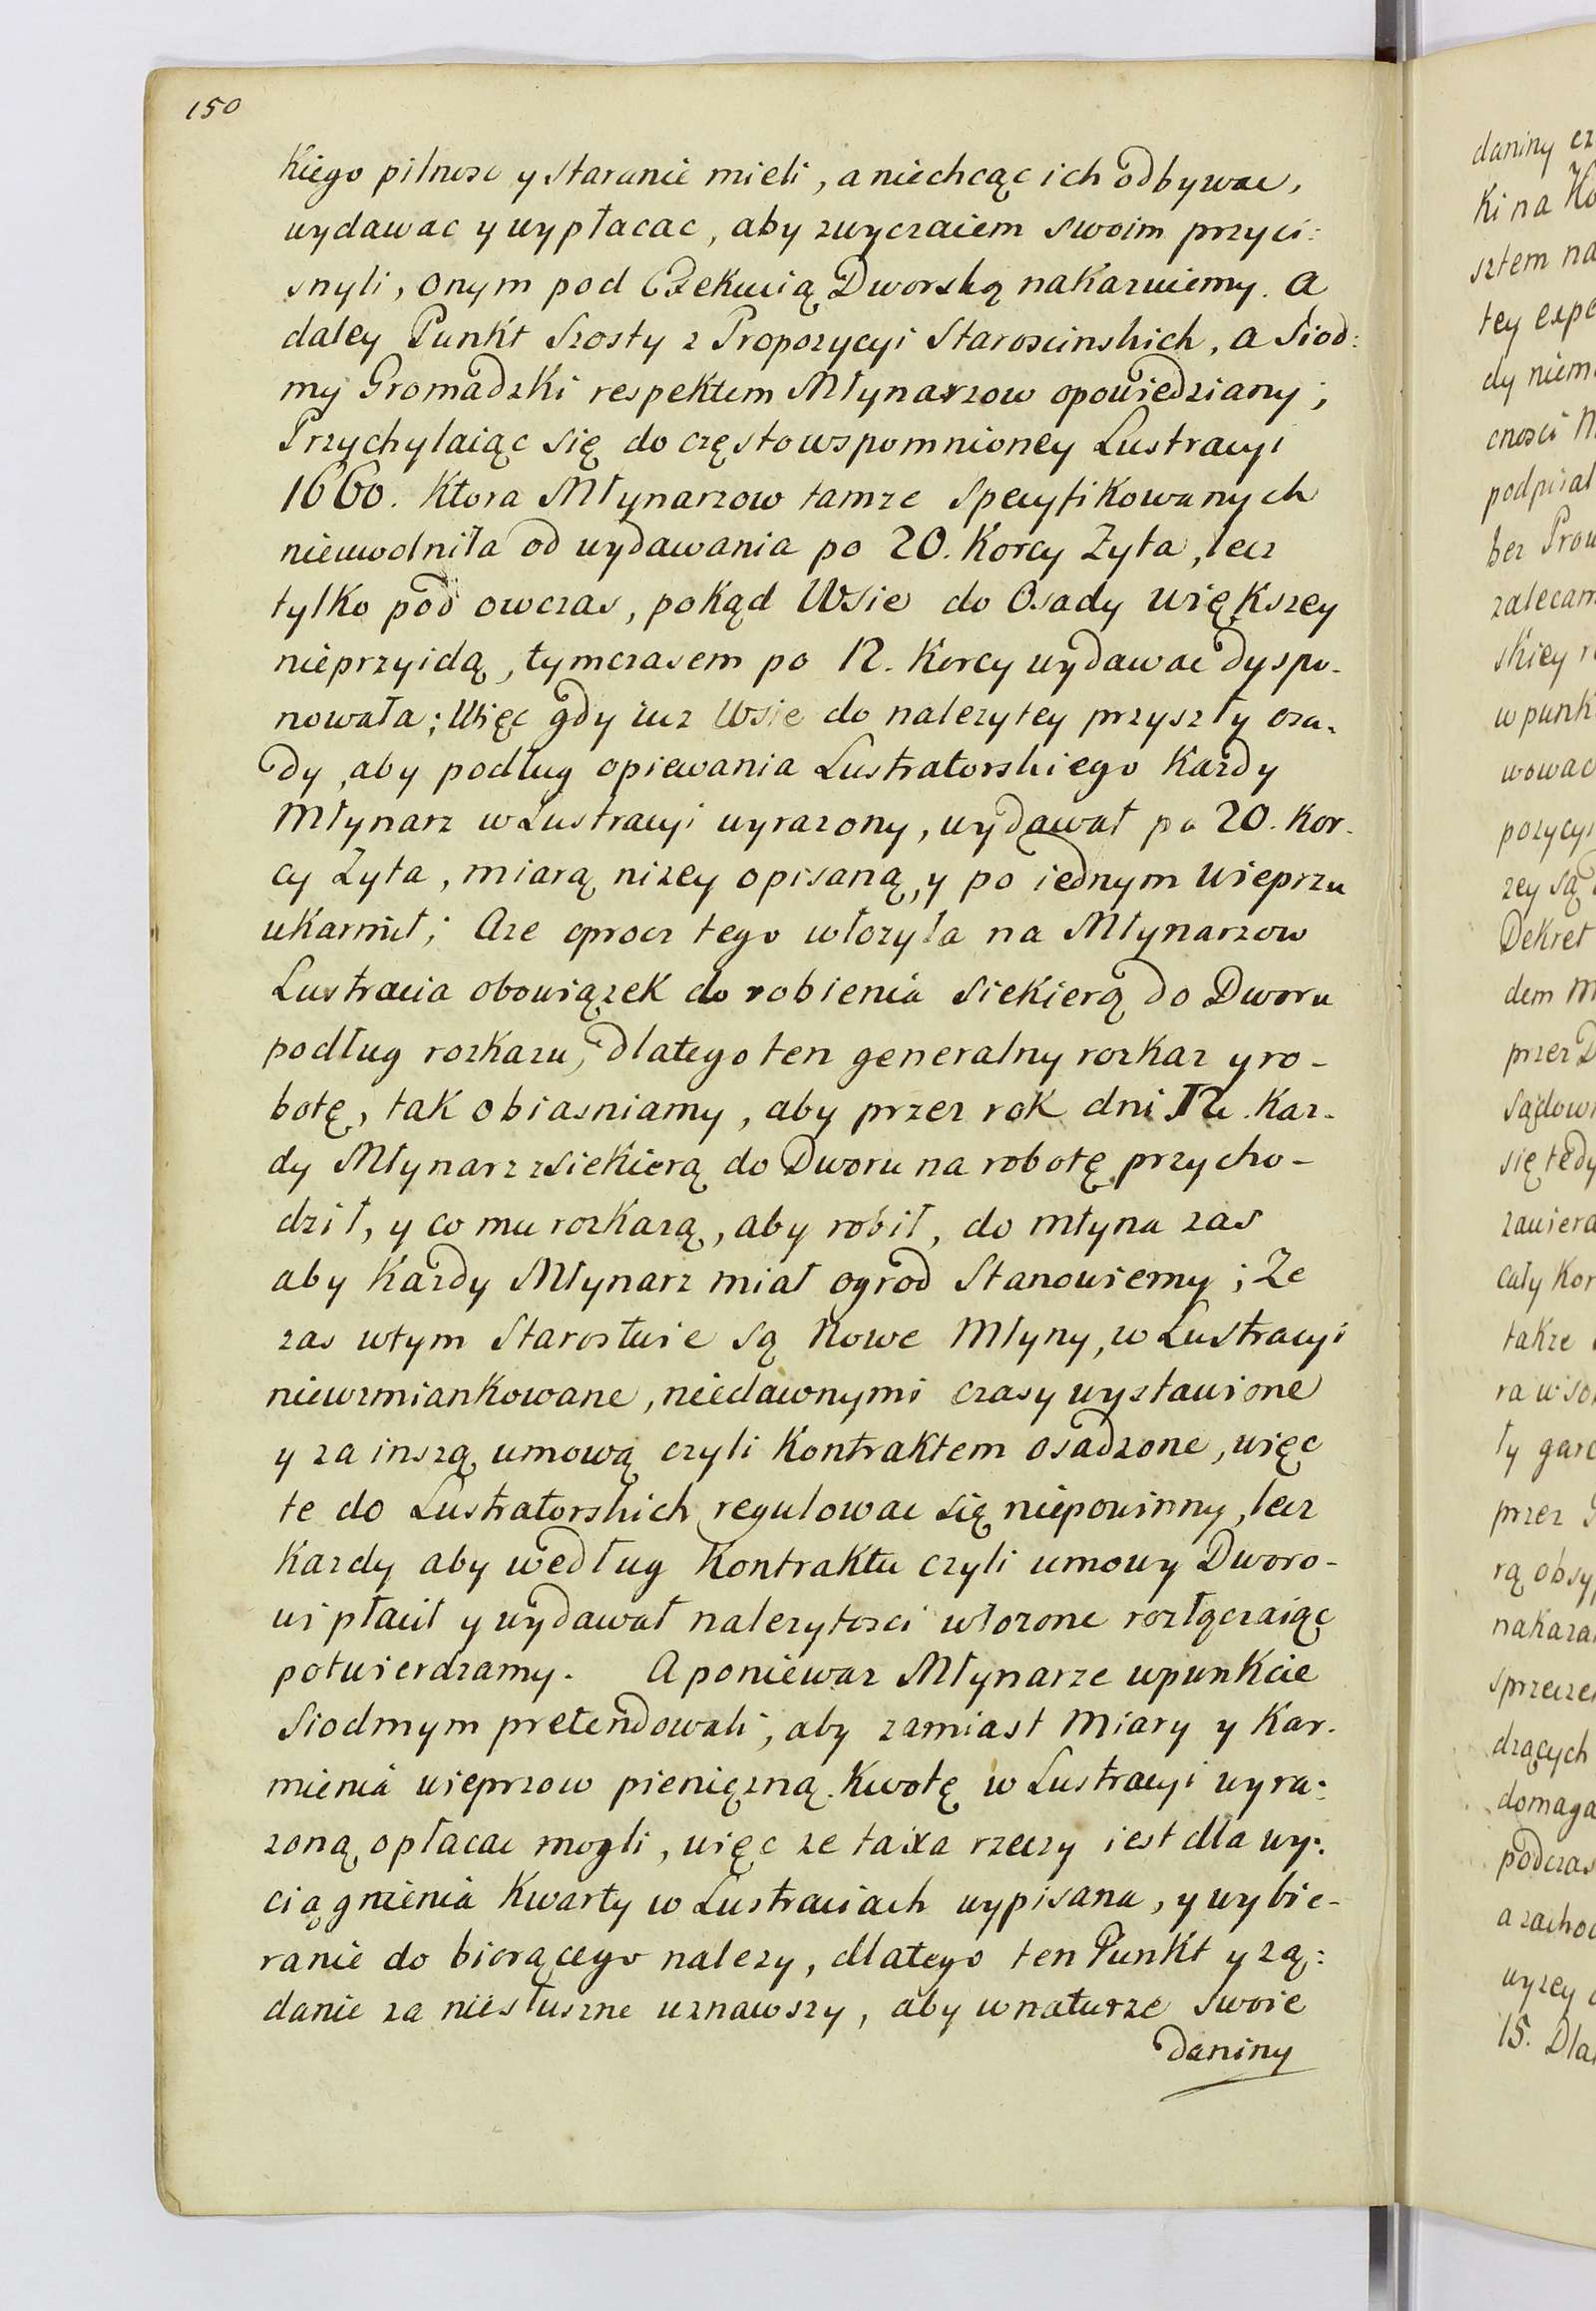 150
Kiego pilnosc y staranie mieli, a niechcąc ich odbywac,
wydawac y wypłacac, aby zwyczaiem swoim przyci:
snyli, onym pod Exekucią Dworską nakazuiemy. A
daley Punkt Szosty z Propozycyi Staroscinskich, a Siod:
my Gromadzki respektem Młynarzow opowiedziany;
Przychylaiąc się do częstowspomnioney Lustracyi
1660. Ktora Młynarzow tamze specyfikowanych
nieuwolniła od wydawania po 20. Korcy Zyta, lecz
tylko pod owczas, pokąd Wsie do Osady większey
nieprzyidą, tymczasem po 12. Korcy wydawac dyspo-
nowała; Więc gdy iuz Wsie do nalezytey przyszły osa-
dy, aby podług opiewania Lustratorskiego Kazdy
Młynarz w Lustracyi wyrazony, wydawał po 20. Kor-
cy Zyta, miarą nizey opisaną, y po iednym Wieprzu
ukarmił; Aze oprocz tego włozyła na Młynarzow
Lustracia obowiązek do robienia Siekierą do Dworu
podług rozkazu, dlatego ten generalny rozkaz y ro-
botę, tak obiasniamy, aby przez rok dni 12. Kaz-
dy Młynarz z siekierą do Dworu na robotę przycho-
dził, y co mu rozkazą, aby robił, do młyna zas
aby Kazdy Młynarz miał ogrod Stanowiemy; Ze
zas wtym Starostwie są Nowe Młyny, w Lustracyi
niewzmiankowane, niedawnymi czasy wystawione
y za inszą umową czyli Kontraktem osadzone, więc
te do Lustratorskich regulowac się niepowinny, lecz
Kazdy aby według Kontraktu czyli umowy Dworo-
wi płacił y wydawał nalezytosci włozone rozłączaiąc
potwierdzamy. A poniewaz Młynarze wpunkcie
Siodmym pretendowali, aby zamiast Miary y Kar-
mienia wieprzow pienięzną Kwotę w Lustracyi wyra:
zoną opłacac mogli, więc ze taxa rzeczy iest dla wy:
ciągnienia Kwarty w Lustraciach wypisana, y wybie-
ranie do biorącego nalezy, dlatego ten Punkt y zą:
danie za niesłuszne uznawszy, aby wnaturze swoie
daniny
daniny cz
ki na Ko
sztem na
tey expe
dy niem
cnosci
podpisał
bez Prow
zalecam
skiey
w punk
wowac
pozycyi
zey są
Dekret
dem
przez D
sądow
się tedy
zawiera
cały Kor
takze
ra w so
ty garc
przez
rą obsy
nakaza
sprzecze
dzących
domaga
podczas
a zachod
wyzey
15. Dla